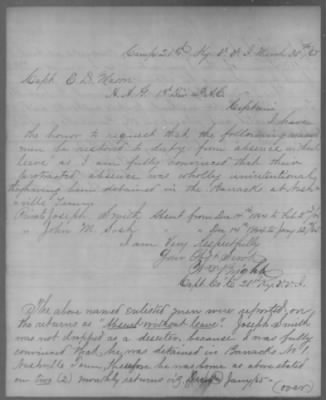 Camp 21st Ky. V. V. I. March 30th/65
Capt. E. D. Mason
A. A. G. 1st Div. 4 A.C.
Captain
I have
the honor to request that the following named
men be restored to duty from absence without
leave as I am fully convinced that their
protracted absence was wholly unintentional,
they having been detained in the Barracks at Nash-
ville Tenn.
Privt Joseph Smith Absent from Dec 14th 1864 to Feb
" John M. " " Dec 14th 1864 to Jany 12/65
I am Very Respectfully
Your Obt Servt
Wright
Capt. Co. E. 21st Ky. V. V. I.
The above named enlisted men were reported on
the returns as "Absent without leave". Joseph Smith
was not dropped as a deserter, because I was fully
convinced that he was detained in Barracks No 1
Nashville Tenn, therefore he was home as above stated
on two (2) monthly returns viz Jany 65
(over)